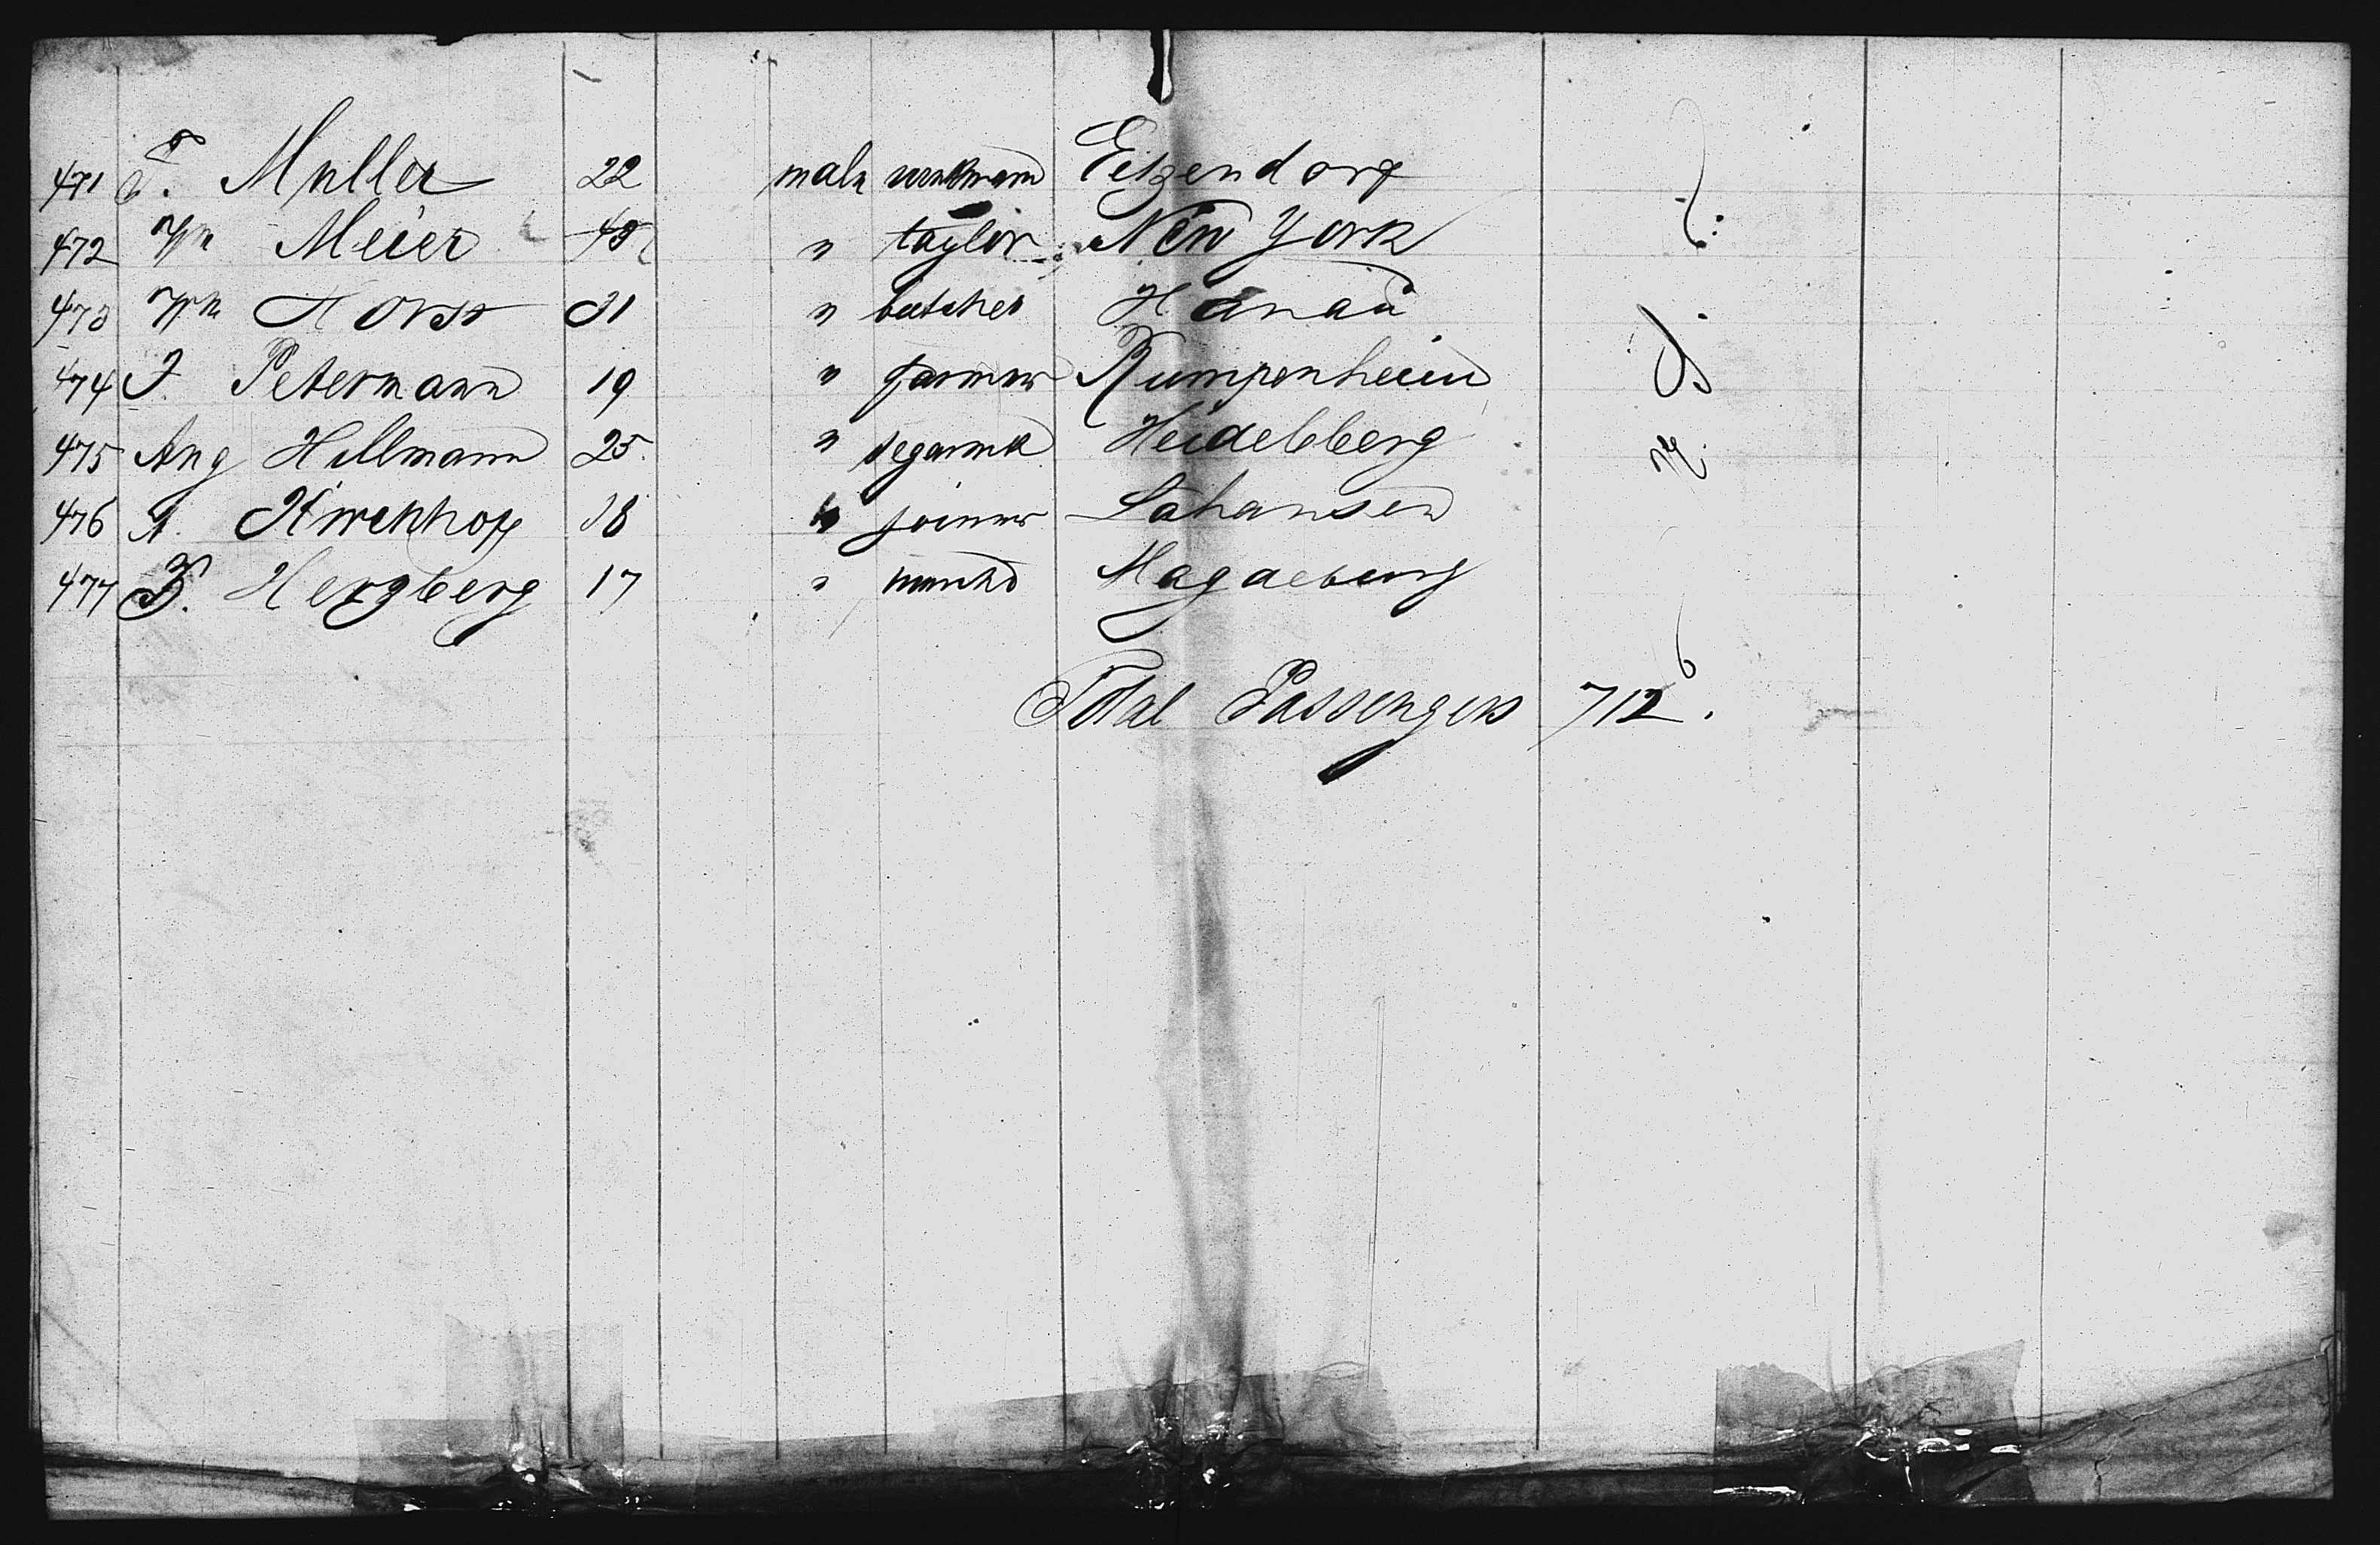 471 F. Muller 22 male workmann Eitzendorf
472 Wm Meier 48 " taylor New York
473 Wm Horst 31 " butcher Hanau
474 J. Petermann 19 " farmer Rumpenheim
475 Aug Hillmann 25 " segarmk Heidelberg
476 A. Kirchhoff 18 " joiner Lahausen
477 F. Herzberg 17 " Magdeburg
Total Passengers 712.